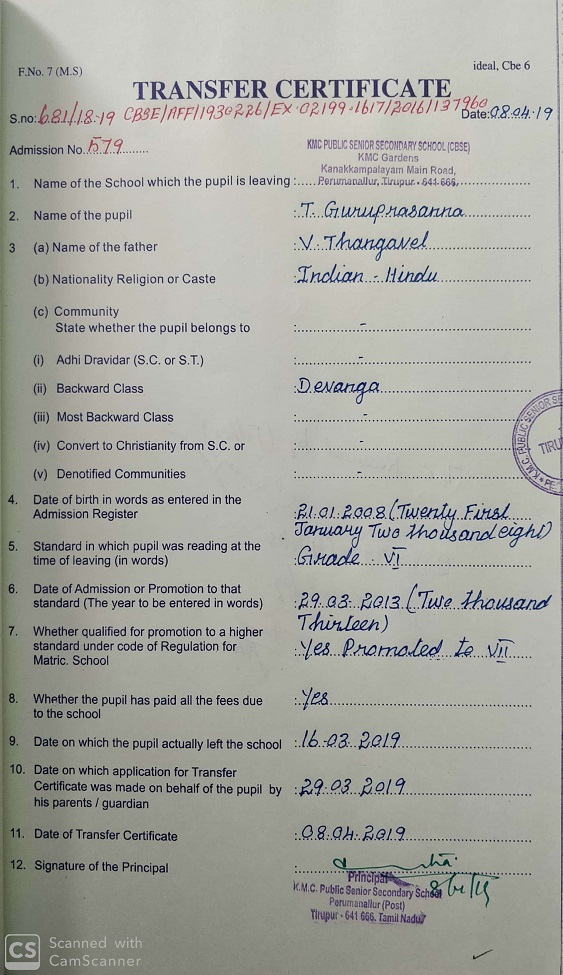 F.No. 7 (M.S)
ideal, Cbe 6
TRANSFER CERTIFICATE
S.no: 681/18-19 CBSE/AFF/1930226/EX-02199-1617/2016/137960 Date: 08.04.19
Admission No. 579
KMC PUBLIC SENIOR SECONDARY SCHOOL (CBSE)
KMC Gardens
Kanakkampalayam Main Road,
1. Name of the School which the pupil is leaving : Perumanallur, Tirupur - 641 666.
2. Name of the pupil : T. Guruprasanna
3 (a) Name of the father : V. Thangavel
(b) Nationality Religion or Caste : Indian - Hindu
(c) Community
State whether the pupil belongs to : -
(i) Adhi Dravidar (S.C. or S.T.) : -
(ii) Backward Class : Devanga
(iii) Most Backward Class : -
(iv) Convert to Christianity from S.C. or : -
(v) Denotified Communities : -
4. Date of birth in words as entered in the
Admission Register : 21.01.2008 (Twenty First
January Two thousand eight)
5. Standard in which pupil was reading at the
time of leaving (in words) : Grade VI
6. Date of Admission or Promotion to that
standard (The year to be entered in words) : 29.03.2013 (Two thousand
Thirteen)
7. Whether qualified for promotion to a higher
standard under code of Regulation for : Yes Promoted to VII
Matric. School
8. Whether the pupil has paid all the fees due : Yes
to the school
9. Date on which the pupil actually left the school : 16-03-2019
10. Date on which application for Transfer
Certificate was made on behalf of the pupil by : 29.03.2019
his parents / guardian
11. Date of Transfer Certificate : 08.04.2019
12. Signature of the Principal :
Principal
K.M.C. Public Senior Secondary School
Perumanallur (Post)
Tirupur - 641 666. Tamil Nadu
8/4/19
K.M.C. PUBLIC SENIOR SE
TIRU
CS Scanned with
CamScanner